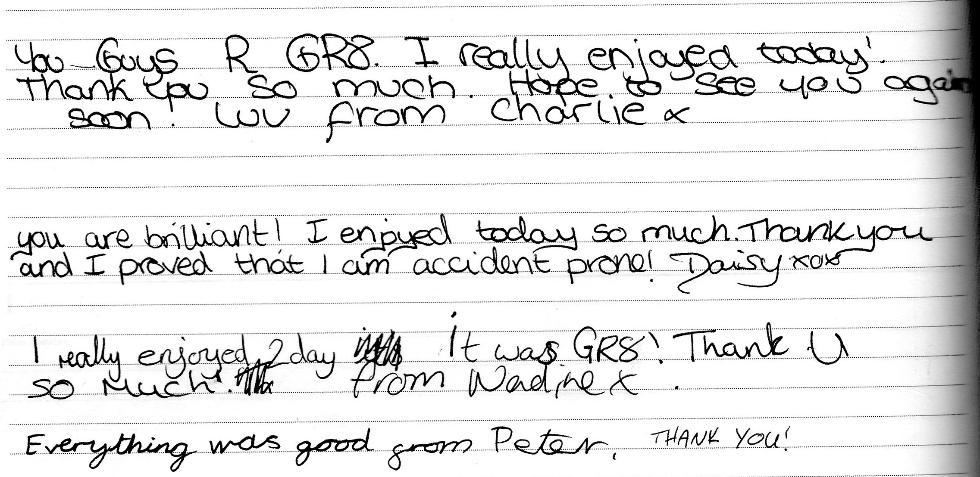 You Guys R GR8. I really enjoyed today!
Thank you so much. Hope to see you again
soon! Luv from Charlie x
you are brilliant! I enjoyed today so much. Thank you
and I proved that I am accident prone! Daisy xox
I really enjoyed 2day it was GR8! Thank U
so much! from Nadine x.
Everything was good from Peter. THANK YOU!